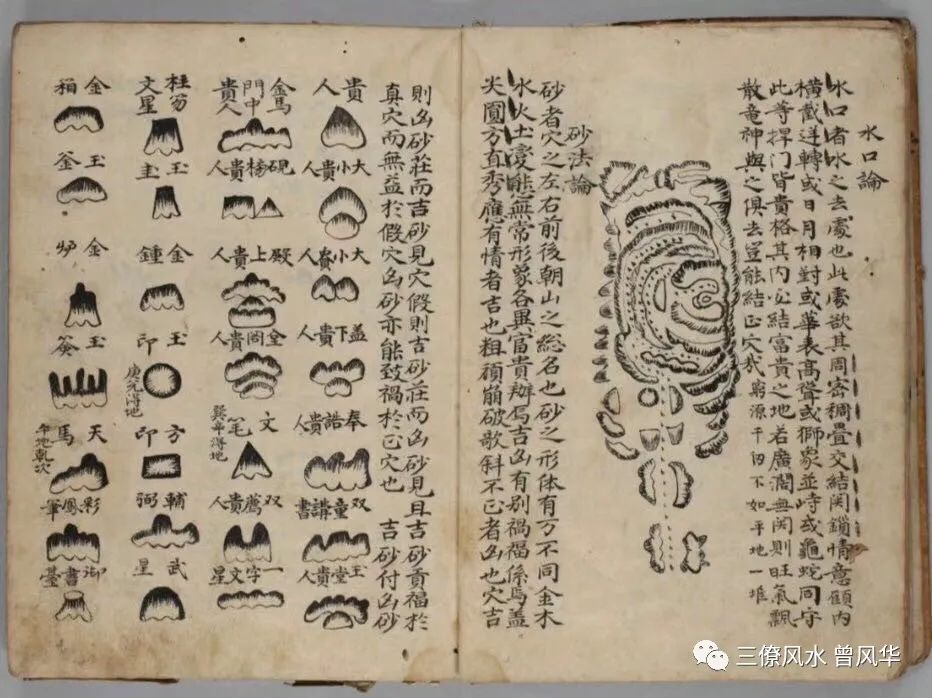 水口論
水口者水之去處也此處欲其周密稠疊交結関鎖情意顧内
橫截逆轉或日月相對或華表高聳或獅象並峙或龜蛇同守
此等捍門皆貴格其内必結富貴之地若廣濶無関則旺氣飄
散竜神與之俱去豈能結正穴哉
窮源千个不如平地一堆
砂法論
砂者穴之左右前後朝山之総名也砂之形体有万不同金木
水火土変態無常形象各異富貴辦焉吉凶有別禍福係焉蓋
尖圓方直秀應有情者吉也粗頑崩破歌斜不正者凶也穴吉
則凶砂莊而吉砂見穴假則吉砂莊而凶砂見且吉砂貢福於
真穴而無益於假穴凶砂亦能致禍於正穴也
吉砂付凶砂
貴人
大小貴人
大小貴人
盖下貴人
奉誥貴人
双童講書
玉堂貴人
金馬門中貴人
硯榜貴人
殿上貴人
貴人
文笔
巽辛得地
双薦貴人
一字文星
柱笏文星
玉圭
金鍾
玉印
庚兌得地
方印
輔弼
武星
金箱
玉釜
金炉
玉
天馬
午地乾次
彩鳳筆
御書臺
三僚风水 曾风华